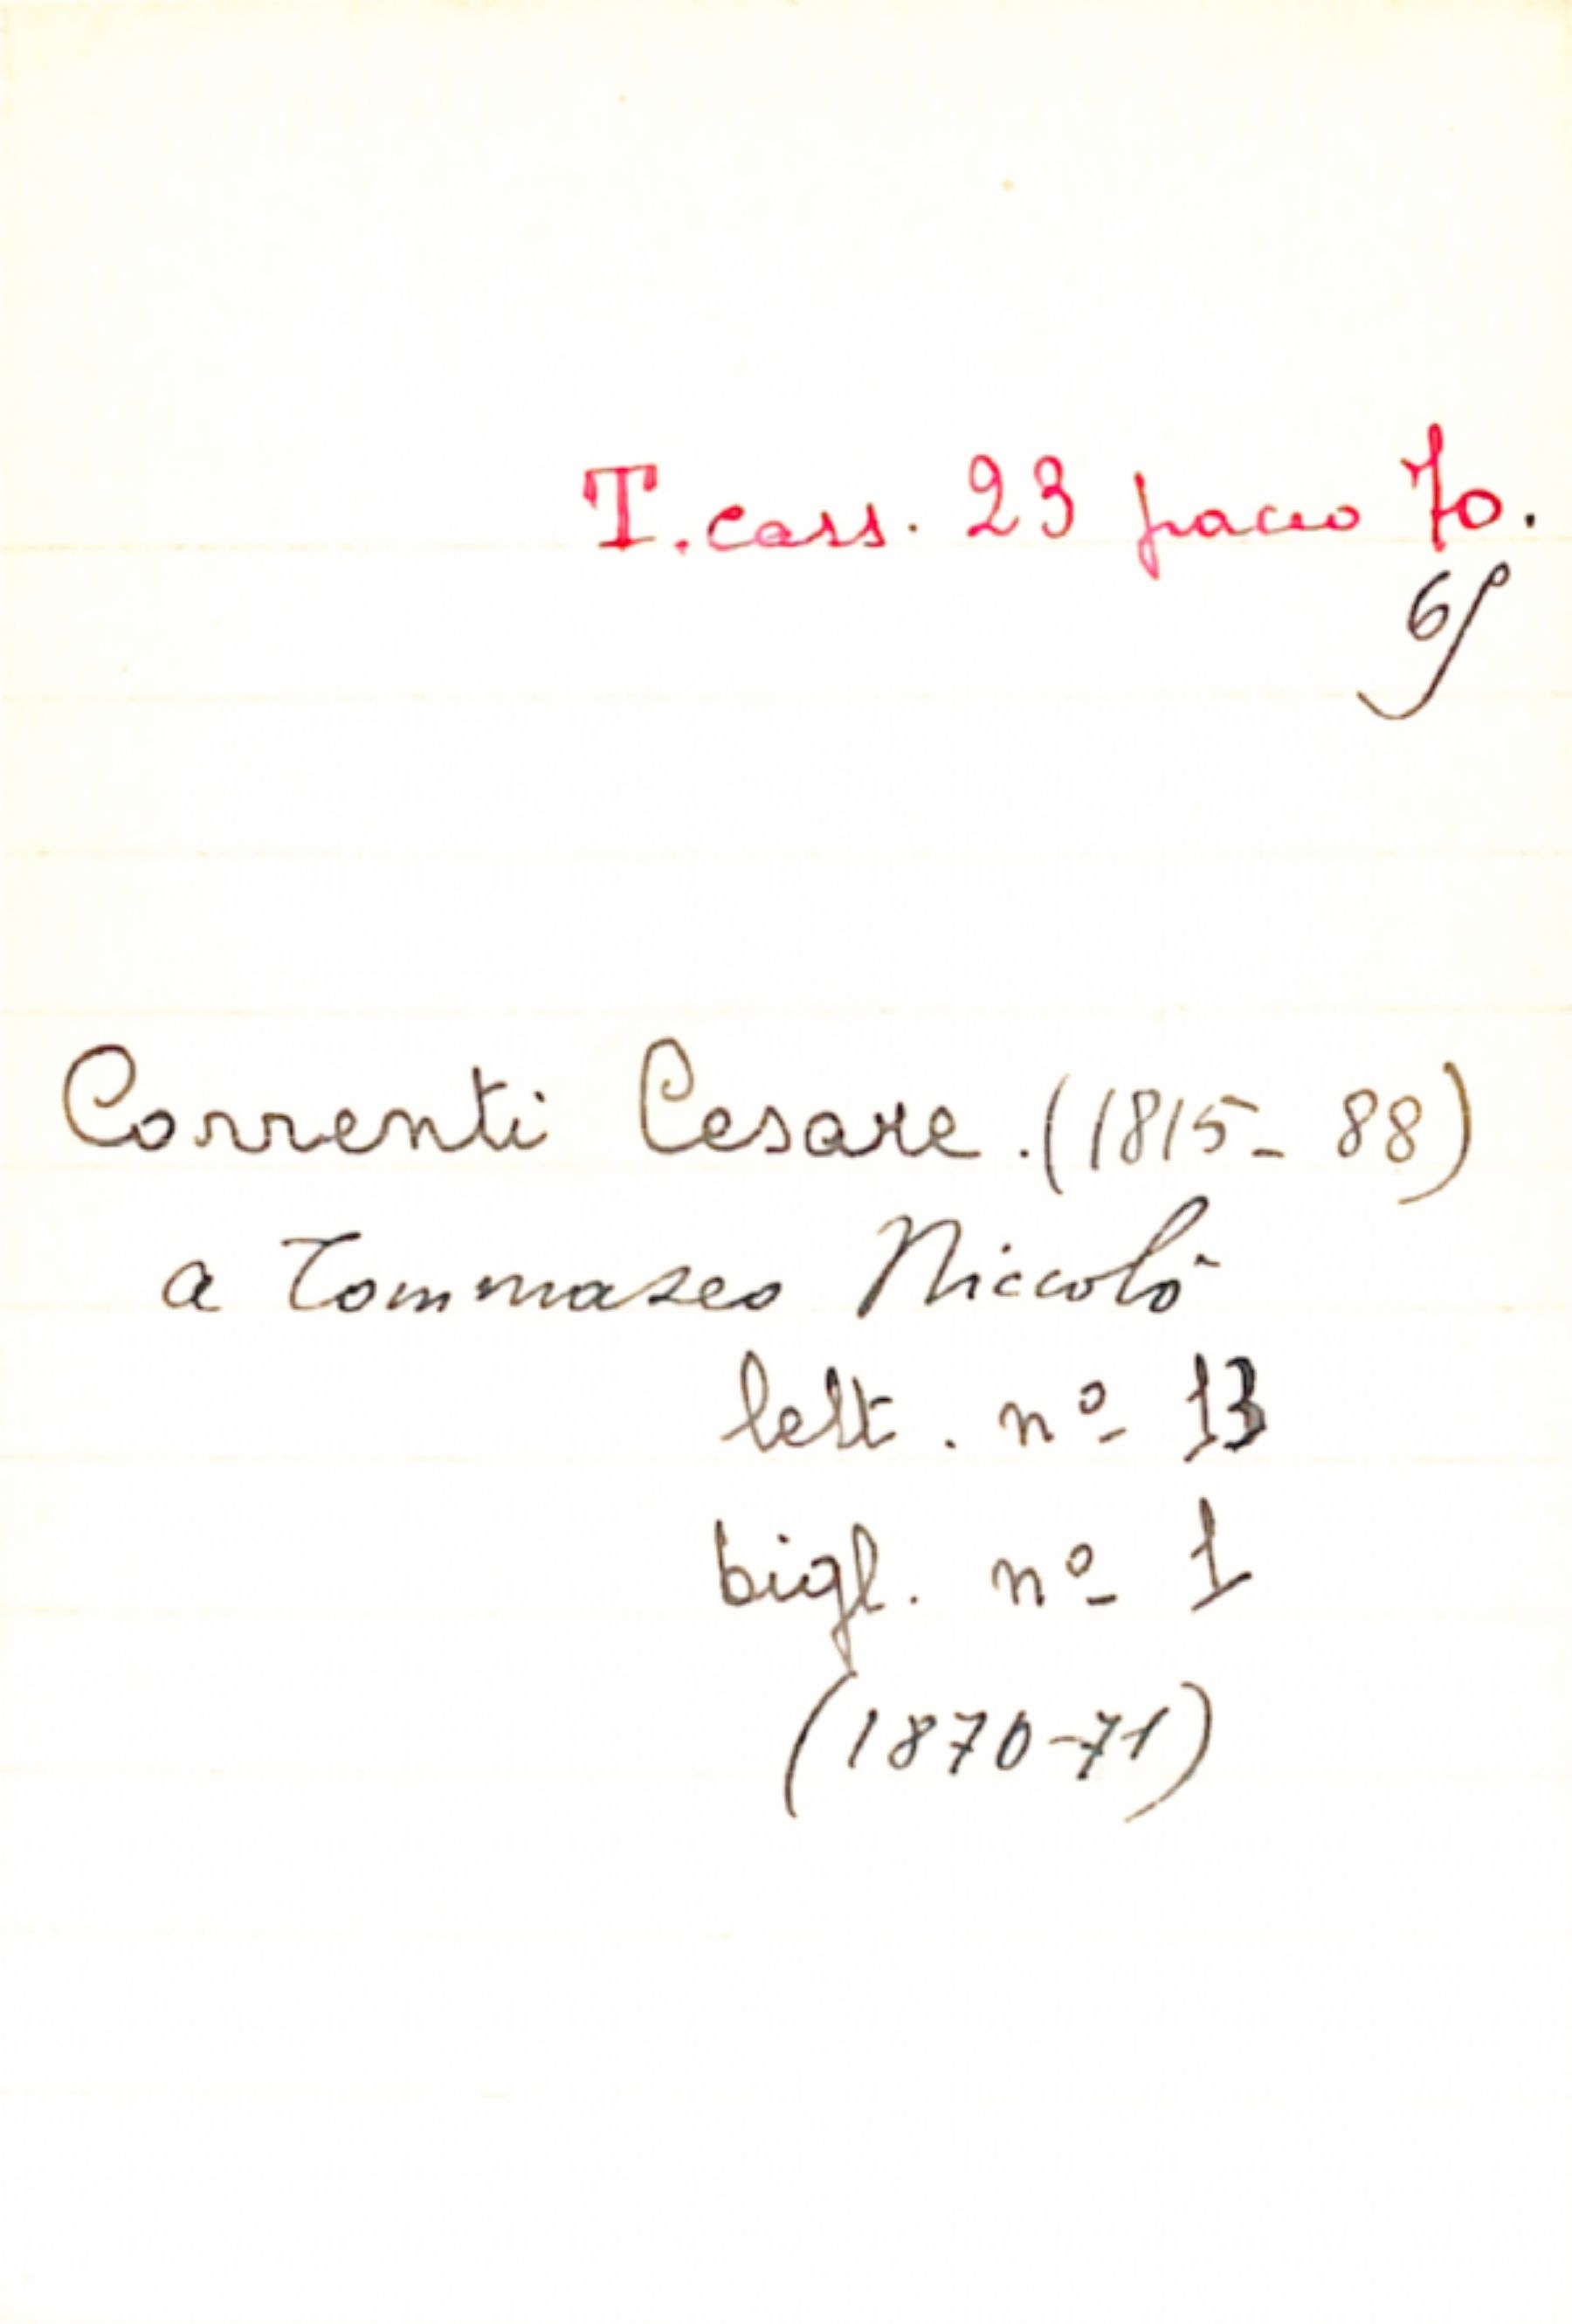 T. cass. 23 pacco 70.
6
Correnti Cesare. (1815-88)
a Tommaseo Niccolò
lett. nº 13
bigl. nº 1
(1870-71)